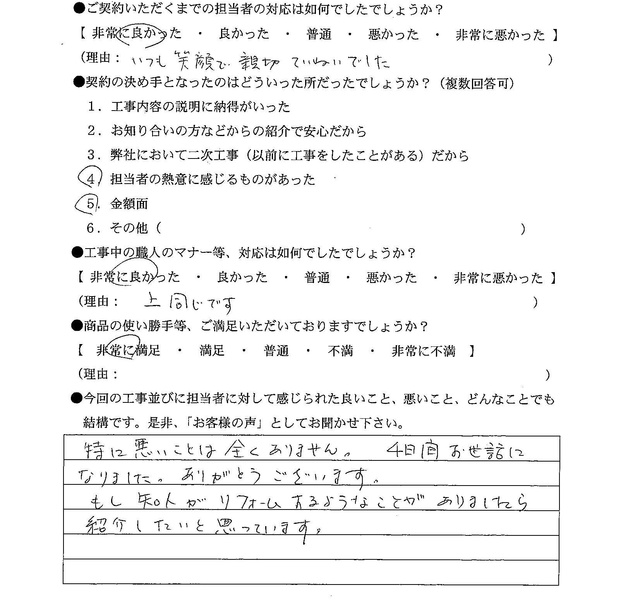 ●ご契約いただくまでの担当者の対応は如何でしたでしょうか？
【 非常に良かった ・ 良かった ・ 普通 ・ 悪かった ・ 非常に悪かった 】
（理由： いつも 笑顔で 親切 ていねいでした ）
●契約の決め手となったのはどういった所だったでしょうか？（複数回答可）
１．工事内容の説明に納得がいった
２．お知り合いの方などからの紹介で安心だから
３．弊社において二次工事（以前に工事をしたことがある）だから
４．担当者の熱意に感じるものがあった
５．金額面
６．その他（ ）
●工事中の職人のマナー等、対応は如何でしたでしょうか？
【 非常に良かった ・ 良かった ・ 普通 ・ 悪かった ・ 非常に悪かった 】
（理由： 上 同じです ）
●商品の使い勝手等、ご満足いただいておりますでしょうか？
【 非常に満足 ・ 満足 ・ 普通 ・ 不満 ・ 非常に不満 】
（理由： ）
●今回の工事並びに担当者に対して感じられた良いこと、悪いこと、どんなことでも
結構です。是非、「お客様の声」としてお聞かせ下さい。
特に悪いことは全くありません。 4日間 お世話に
なりました。ありがとうございます。
もし知人がリフォームするようなことがありましたら
紹介したいと思っています。